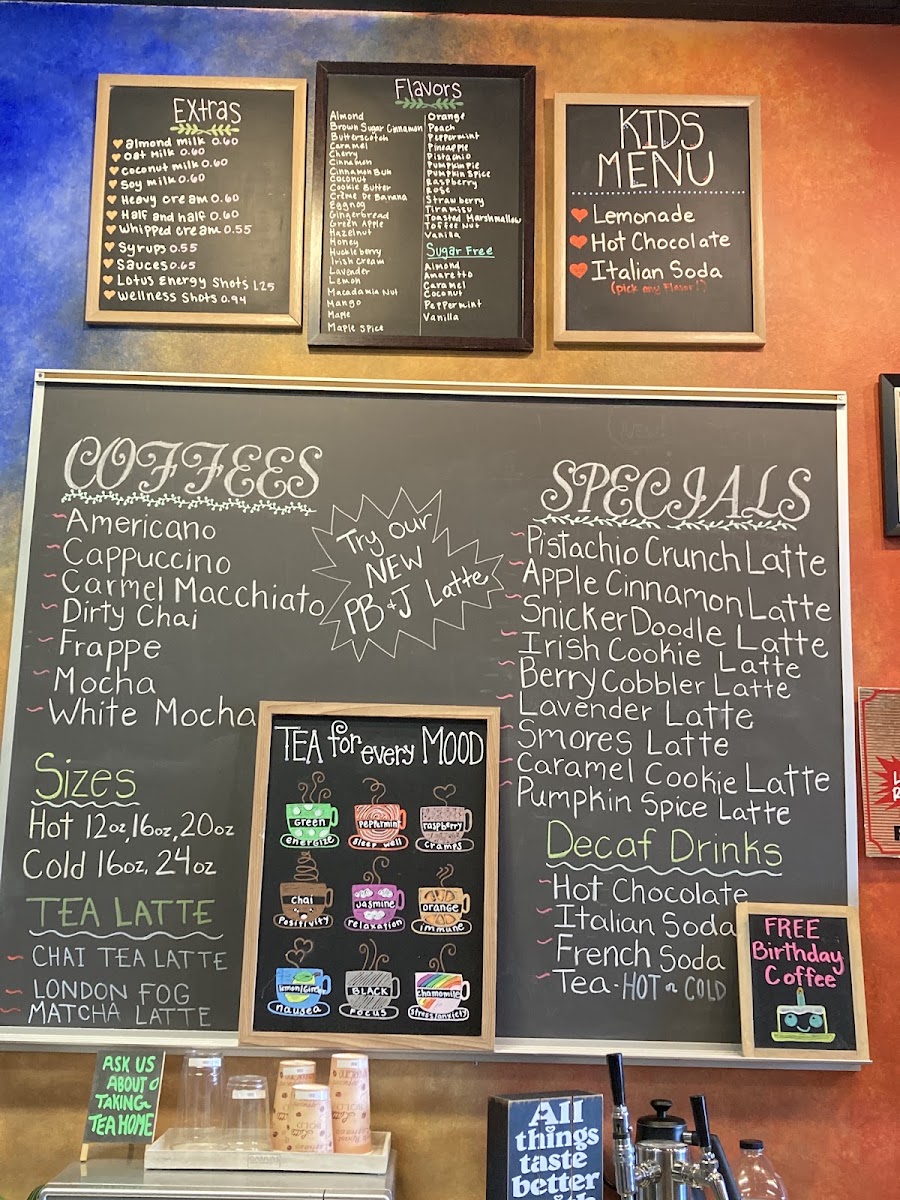 Extras
almond milk 0.60
Oat milk 0.60
coconut milk 0.60
Soy milk 0.60
Heavy cream 0.60
Half and half 0.60
Whipped cream 0.55
Syrups 0.55
Sauces 0.65
Lotus Energy Shots 1.25
Wellness Shots 0.94
Flavors
Almond
Brown Sugar Cinnamon
Butterscotch
Caramel
Cherry
Cinnamon
Cinnamon Bun
Coconut
Cookie Butter
Crème De Banana
Eggnog
Gingerbread
Green Apple
Hazelnut
Honey
Huckleberry
Irish Cream
Lavender
Lemon
Macadamia Nut
Mango
Maple
Maple Spice
Orange
Peach
Peppermint
Pineapple
Pistachio
Pumpkin Pie
Pumpkin Spice
Raspberry
Rose
Strawberry
Tiramisu
Toasted Marshmallow
Toffee Nut
Vanilla
Sugar Free
Almond
Amaretto
Caramel
Coconut
Peppermint
Vanilla
KIDS
MENU
Lemonade
Hot Chocolate
Italian Soda
(pick any Flavor!)
COFFEES
Americano
Cappuccino
Carmel Macchiato
Dirty Chai
Frappe
Mocha
White Mocha
Try our
NEW
PB&J Latte
Sizes
Hot 12oz, 16oz, 20oz
Cold 16oz, 24oz
TEA LATTE
CHAI TEA LATTE
LONDON FOG
MATCHA LATTE
TEA for every MOOD
Green
energize
Peppermint
Sleep well
raspberry
cramps
chai
Positivity
Jasmine
relaxation
orange
immune
lemon/Ginger
nausea
BLACK
Focus
chamomile
stress/anxiety
SPECIALS
Pistachio Crunch Latte
Apple Cinnamon Latte
SnickerDoodle Latte
Irish Cookie Latte
Berry Cobbler Latte
Lavender Latte
Smores Latte
Caramel Cookie Latte
Pumpkin Spice Latte
Decaf Drinks
Hot Chocolate
Italian Soda
French Soda
Tea - HOT or COLD
FREE
Birthday
Coffee
ASK US
ABOUT
TAKING
TEA HOME
All
things
taste
better